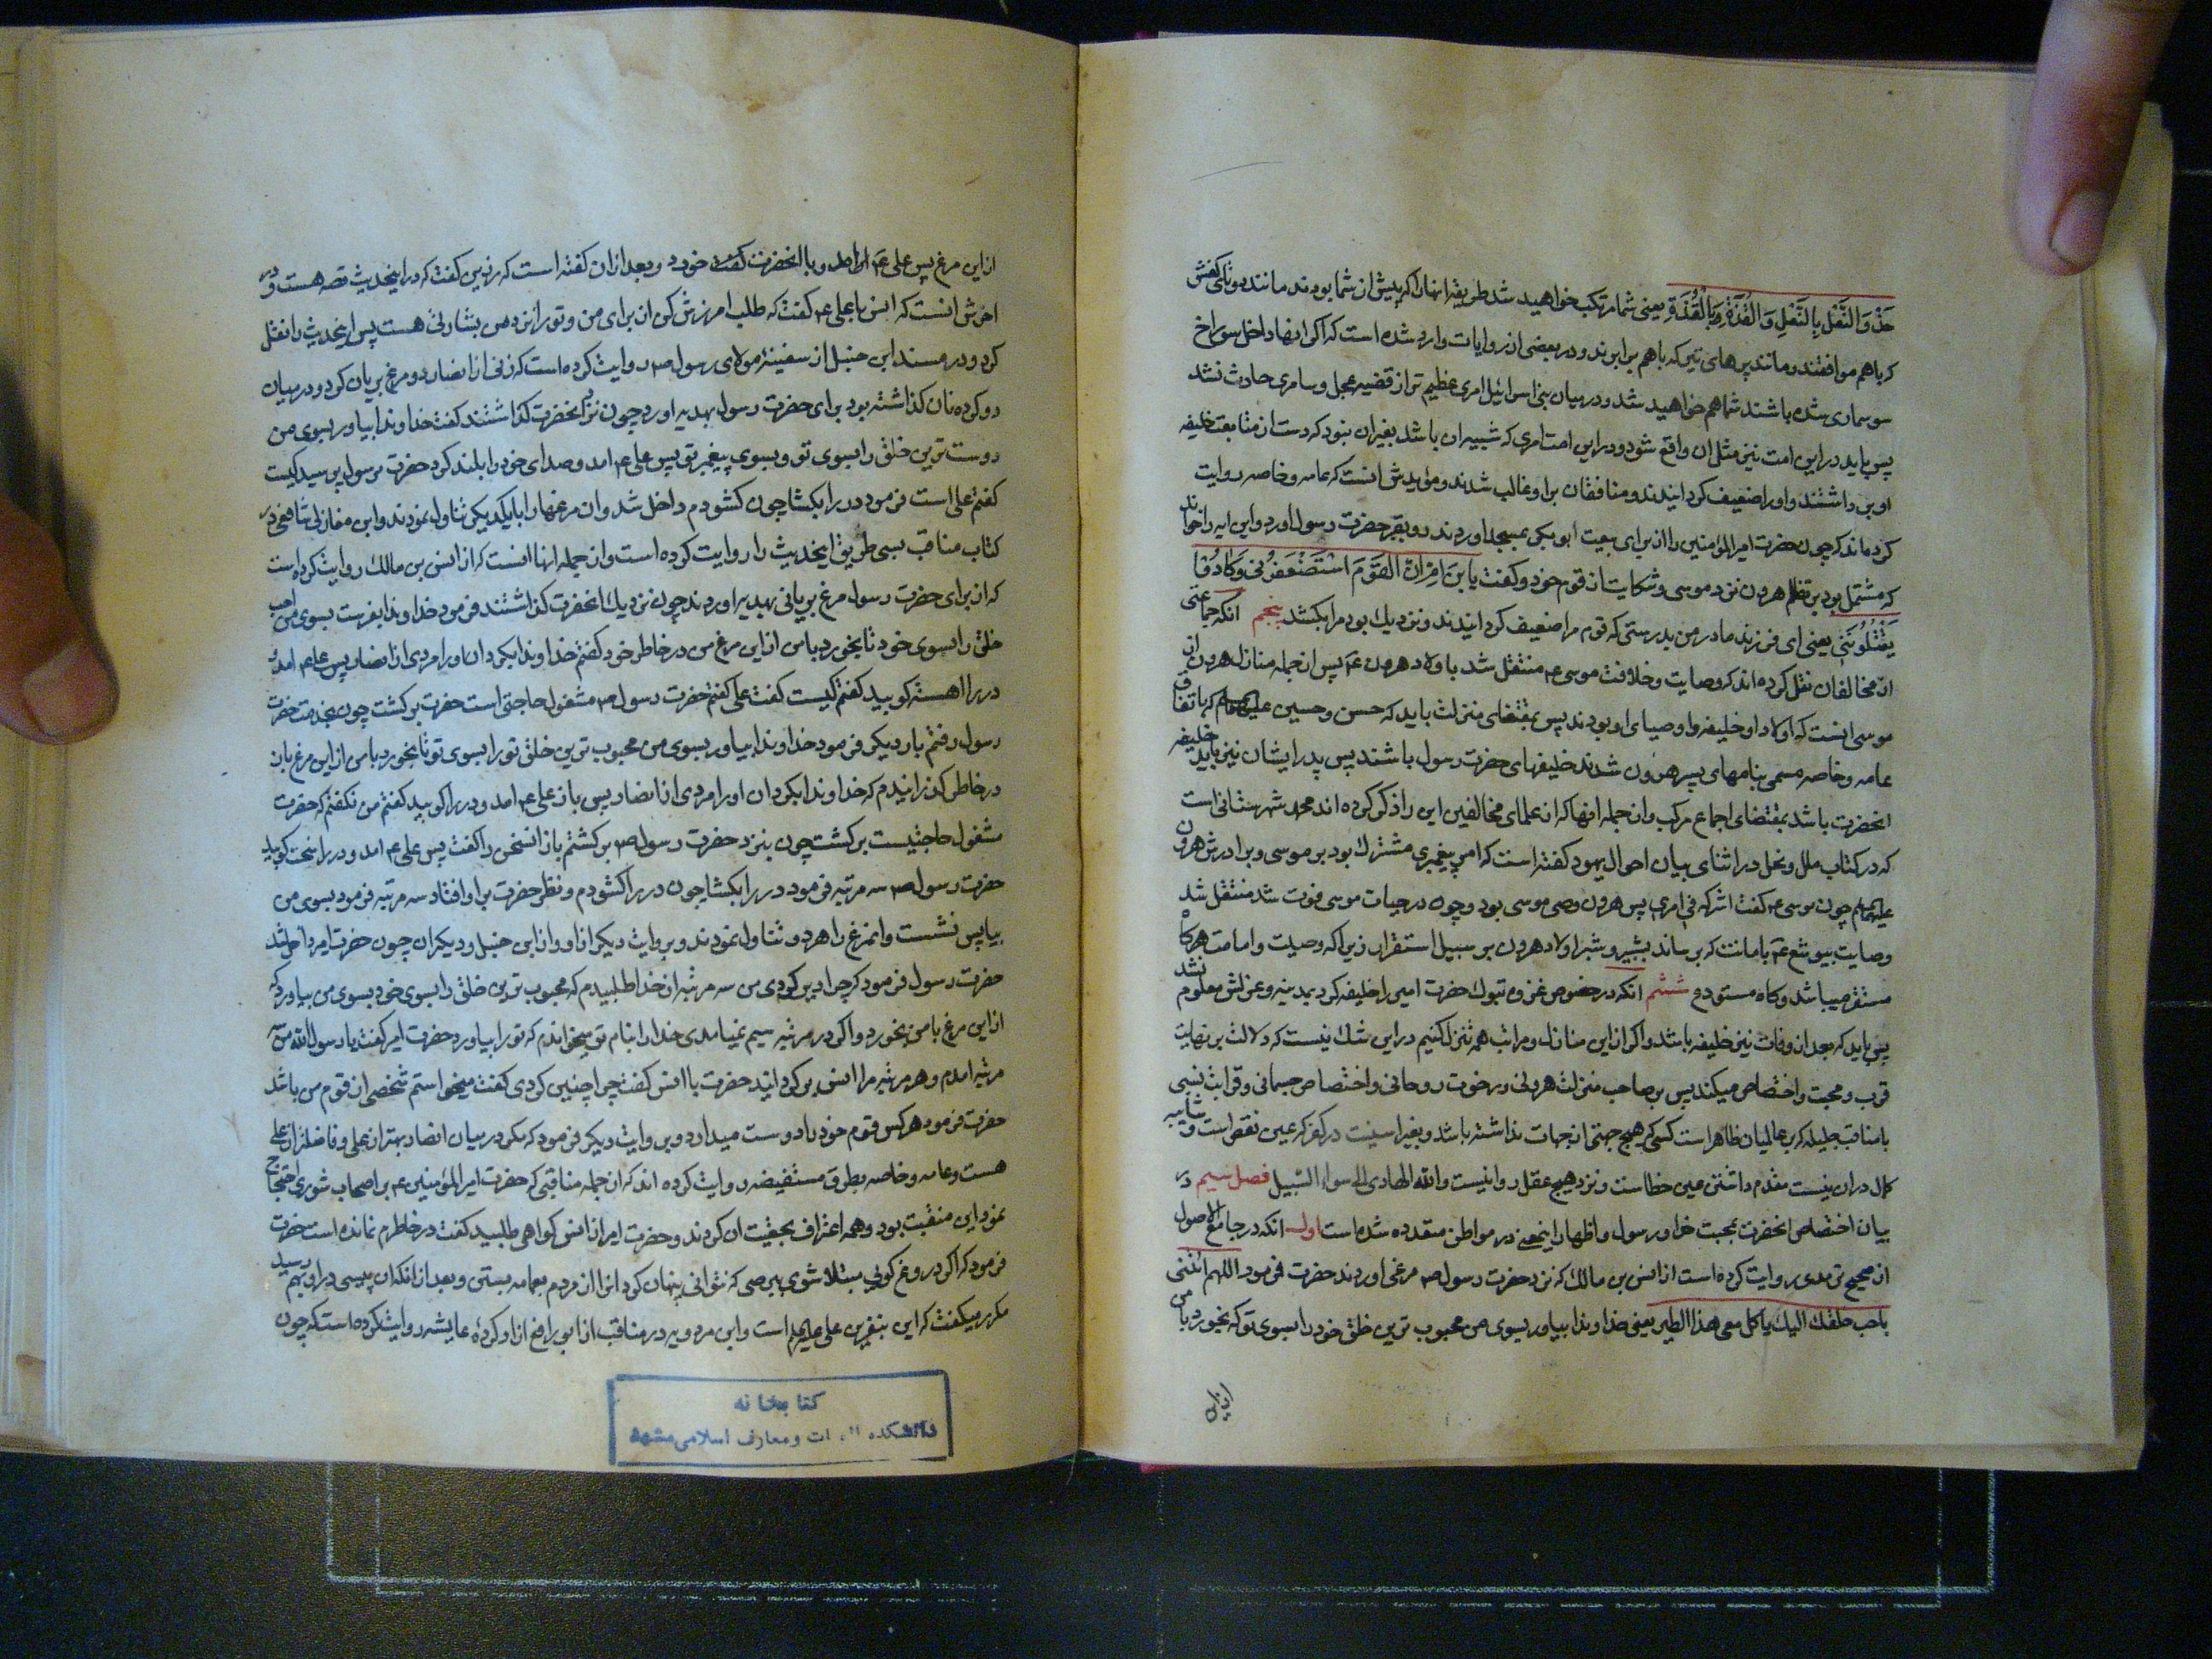 حَذْوَ النَّعْلِ بِالنَّعْلِ وَ القُذَّةِ وَبِالْقُذَّةِ یعنی شما مرتکب خواهید شد طریقه انها را که پیش از شما بودند مانند دوتای کفش
که باهم موافقند و مانند پرهای تیر که باهم برابرند و در بعضی از روایات وارد شده است که اگر انها داخل سوراخ
سوسماری شده باشند شما هم خواهید شد و در میان بنی اسرائیل امری عظیم تر از قضیه عجل و سامری حادث نشد
پس باید در این امت نیز مثل ان واقع شود و در این امت امری که شبیه ان باشد بغیر ان نبود که دست از متابعت خلیفه
او بر داشتند و او را ضعیف کردانیدند و منافقان بر او غالب شدند و مؤیدش انست که عامه و خاصه روایت
کرده‌اند که چون حضرت امیر المؤمنین را از برای بیعت ابو بکر بمسجد اوردند رو بقبر حضرت رسول اورد و این ایه را خواند
که مشتمل بود بر تظلم هرون نزد موسی و شکایت از قوم خود و کفت یا ابْنَ اُمَّ اِنَّ القَوْمَ اسْتَضْعَفُونی وَکادُوْا
یَقْتُلُونَنِی یعنی ای فرزند مادر من بدرستی که قوم مرا ضعیف کردانیدند و نزدیك بود مرا بکشند پنجم انکه جماعتی
از مخالفان نقل کرده اند که وصایت و خلافت موسی ع منتقل شد باولاد هرون ع پس از جمله منازل هرون از
موسی انست که اولاد او خلیفه و اوصیای او بودند پس بمقتضای منزلت باید که حسن و حسین علیهما السلام که باتفاق
عامه و خاصه مسمی بنامهای پسر هرون شدند خلیفهای حضرت رسول باشند پس پدر ایشان نیز باید خلیفه
انحضرت باشد بمقتضای اجماع مرکب و از جمله انها که از علمای مخالفین این را ذکر کرده اند محمد شهرستانی است
که در کتاب ملل و نحل در اثنای بیان احوال یهود کفته است که امر پیغمبری مشترك بود بر موسی و برادرش هرون
علیهما السلام چون موسی ع کفت اشرکه فی امری پس هرون وصی موسی بود و چون در حیات موسی فوت شد منتقل شد
وصایت بیوشع ع بامانت که برساند بشبیر و شبر اولاد هرون بر سبیل استقرار زیرا که وصیت و امامت هر کاه
مستقر میباشد و کاه مستودع ششم انکه در خصوص غزوه تبوك حضرت امیر را خلیفه کرد بمدینه و عزلش معلوم نشد
پس باید که بعد از وفات نیز خلیفه باشد و اکر از این منازل و مراتب همه تنزل کنیم در این شك نیست که دلالت بر نهایت
قرب و محبت و اختصاص میکند پس بر صاحب منزلت هرونی در خوت روحانی و اختصاص جسمانی و قرابت نسبی
با مناقب جلیله که بر عالمیان ظاهر است کسی که هیچ جهتی از جهات نداشته باشد و بغیر اسبقت در کفر که عین نقص است و شایبه
کمال در ان نیست مقدم داشتن عین خطاست و نزد هیچ عقل روا نیست والله الهادی الی سواء السّبیل فصل سیم در
بیان اختصاص انحضرت بمحبت خدا و رسول و اظهار اینمعنی در مواطن متعدده شده است اول انکه در جامع الاصول
از صحیح ترمدی روایت کرده است از انس بن مالك که نزد حضرت رسول ص مرغی اوردند حضرت فرمود اللهم ائتنی
باحب خلقك الیك یاکل معی هذا الطیر یعنی خداوندا بیاور بسوی من محبوب ترین خلق خود را بسوی تو که بخورد با من
از این
از این مرغ پس علی ع امد و با انحضرت خورد و بعد از ان کفته است که رزین کفت که در اینحدیث قصه هست و در
اخرش انست که انس با علی ع کفت که طلب امرزش کن از برای من و تو را نزد من بشارتی هست پس اینحدیث را نقل
کرد و در مسند ابن حنبل از سفینهٔ مولای رسول ص روایت کرده است که زنی از انصار دو مرغ بریان کرد و در میان
دو کرده نان کذاشته بود برای حضرت رسول بهدیه اورد چون نزد انحضرت کذاشتند کفت خداوندا بیاور بسوی من
دوست ترین خلق را بسوی تو و بسوی پیغمبر تو پس علی ع امد و صدای خود را بلند کرد حضرت رسول پرسید کیست
کفتم علی است فرمود در را بکشا چون کشودم داخل شد و ان مرغها را با یکدیکر تناول نمودند و ابن مغازلی شافعی در
کتاب مناقب بسی طریق اینحدیث را روایت کرده است و از جمله انها انست که از انس بن مالك روایت کرده است
که از برای حضرت رسول مرغ بریانی بهدیه اوردند چون نزدیك انحضرت کذاشتند فرمود خداوندا بفرست بسوی من احب
خلق را بسوی خود تا بخورد با من از این مرغ من در خاطر خود کفتم خداوندا بکردان او را مردی از انصار پس علی ع امد و
در را اهسته کوبید کفتم کیست کفت علی کفتم حضرت رسول ص مشغول حاجتی است حضرت برکشت چون بخدمت حضرت
رسول رفتم بار دیکر فرمود خداوندا بیاور بسوی من محبوب ترین خلق تو را بسوی تو تا بخورد با من از این مرغ باز
در خاطر کذرانیدم که خداوندا بکردان او را مردی از انصار پس باز علی ع امد و در را کوبید کفتم من نکفتم که حضرت
مشغول حاجتیست برکشت چون بنزد حضرت رسول ص برکشتم باز انسخن را کفت پس علی ع امد و در را سخت کوبید
حضرت رسول ص سه مرتبه فرمود در را بکشا چون در را کشودم و نظر حضرت بر او افتاد سه مرتبه فرمود بسوی من
بیا پس نشست و انمرغ را هر دو تناول نمودند و بروایت دیکر از او و از ابن حنبل و دیکران چون حضرت امیر داخل شد
حضرت رسول فرمود که چرا دیر کردی من سه مرتبه از خدا طلبیدم که محبوب ترین خلق را بسوی خود بسوی من بیاورد که
از این مرغ با من بخورد و اکر در مرتبه سیم نمیامدی خدا را بنام تو میخواندم که تو را بیاورد حضرت امیر کفت یا رسول الله من سه
مرتبه امدم و هر مرتبه مرا انس بر کردانید حضرت با انس کفت چرا چنین کردی کفت میخواستم شخصی از قوم من باشد
حضرت فرمود هر کس قوم خود را دوست میدارد و بروایت دیکر فرمود که مکر در میان انصار بهتر از علی و فاضلتر از علی
هست و عامه و خاصه بطرق مستفیضه روایت کرده اند که از جمله مناقبی که حضرت امیر المؤمنین ع بر اصحاب شوری احتجاج
نمود این منقبت بود و همه اعتراف بحقیت ان کردند و حضرت امیر از انس کواهی طلبید کفت در خاطرم نمانده است حضرت
فرمود که اکر دروغ کوئی مبتلا شوی ببرصی که نتوانی پنهان کرد انرا از مردم بعمامه بستن و بعد از انکه ان پیسی در او بهم رسید
مکرر میکفت که این بنفرین علی علیه السلام است و ابن مردویه در مناقب از ابو رافع ازاد کردهٔ عایشه روایت کرده است که چون
کتابخانه
دانشکده ات و معارف اسلامی مشهد